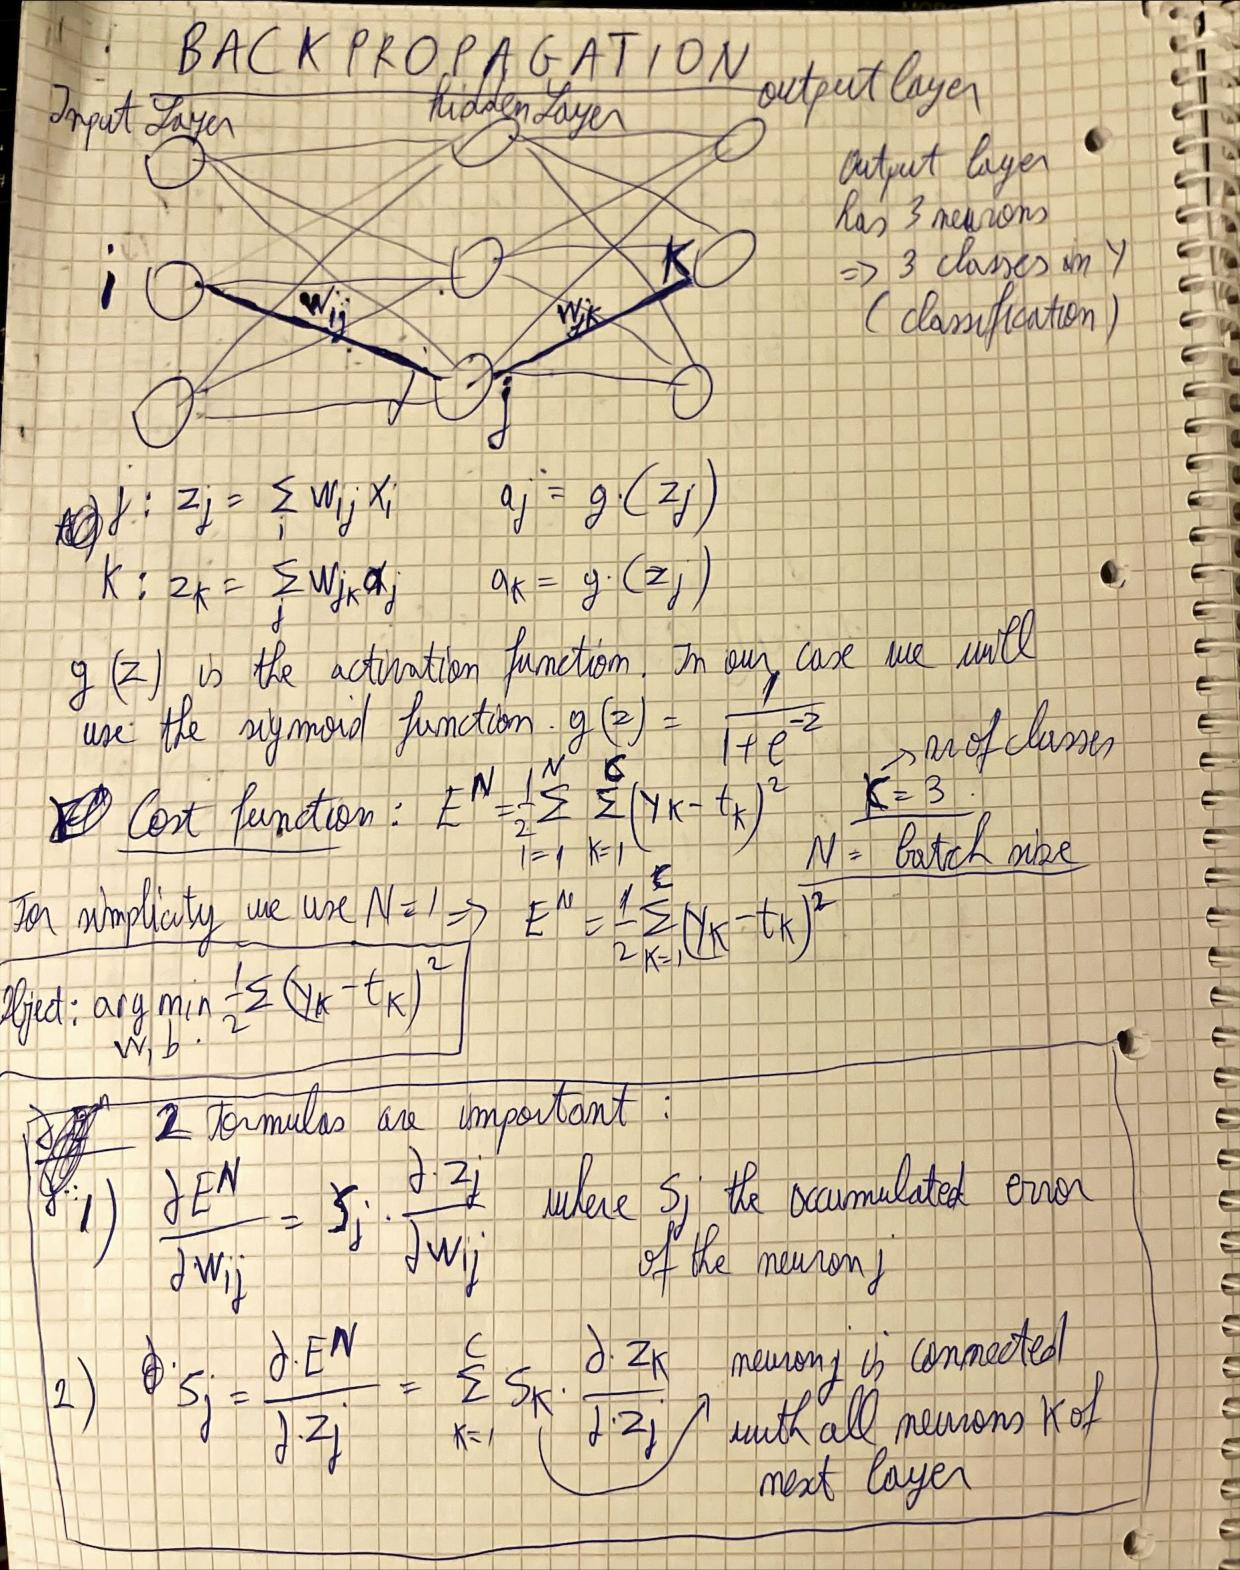 BACKPROPAGATION
Input Layer hidden Layer output layer
output layer
has 3 neurons
=> 3 classes in Y
(classification)
i
K
Wij
Wjk
j
j: zj = Σ i Wij xi    aj = g·(zj)
K: zK = Σ j WjK aj    aK = g·(zj)
g(z) is the activation function. In our case we will
use the sigmoid function. g(z) = 1 / (1+e^-z)
-> nr of classes
C = 3
Cost function: E^N = 1/2 Σ i=1 N Σ K=1 C (yK - tK)^2
N = batch size
For simplicity we use N=1 => E^N = 1/2 Σ K=1 C (yK - tK)^2
Object: arg min W,b 1/2 Σ (yK - tK)^2
2 Formulas are important:
1) ∂E^N / ∂Wij = Sj · ∂·zj / ∂Wij where Sj the accumulated error
of the neuron j
2) Sj = ∂·E^N / ∂·zj = Σ K=1 C SK · ∂·zK / ∂·zj neuron j is connected
with all neurons K of
next layer